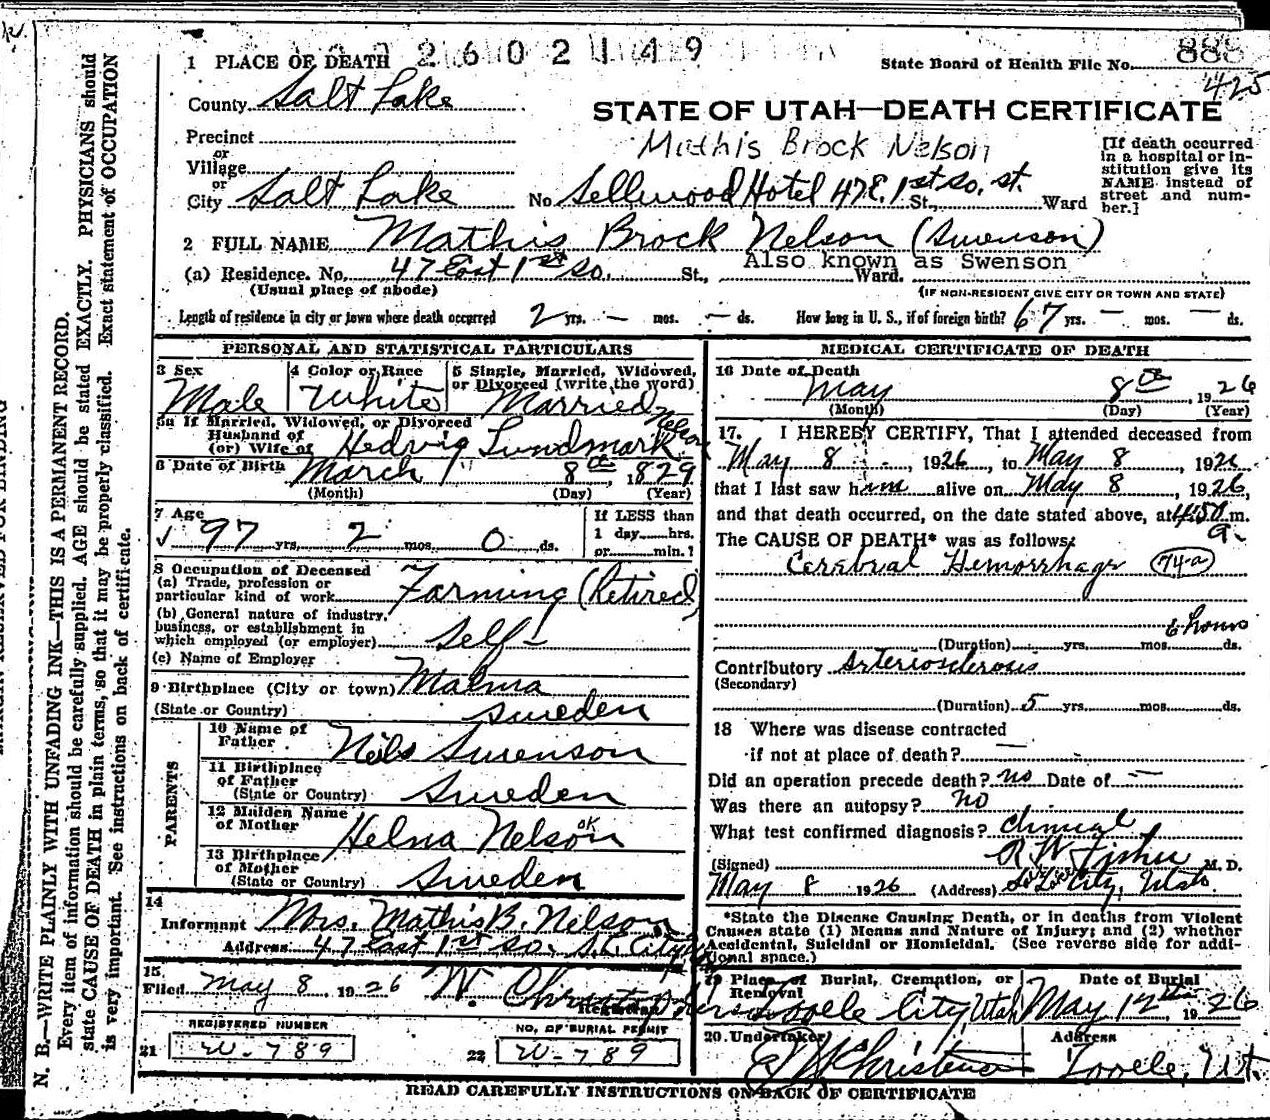 2602149
888
State Board of Health File No.
425
1 PLACE OF DEATH
County Salt Lake
STATE OF UTAH—DEATH CERTIFICATE
Precinct
or
Village
or
City Salt Lake
Mathis Brock Nelson
No Sellwood Hotel 47 E. 1st So. st. St., Ward
[If death occurred in a hospital or in-
stitution give its
NAME instead of
street and num-
ber.]
2 FULL NAME Mathis Brock Nelson (Swenson)
Also known as Swenson
(a) Residence. No. 47 East 1st So. St., Ward.
(Usual place of abode)
(IF NON-RESIDENT GIVE CITY OR TOWN AND STATE)
Length of residence in city or town where death occurred 2 yrs. — mos. — ds.
How long in U. S., if of foreign birth? 67 yrs. — mos. — ds.
PERSONAL AND STATISTICAL PARTICULARS
3 Sex Male
4 Color or Race White
5 Single, Married, Widowed,
or Divorced (write the word)
Married
5a If Married, Widowed, or Divorced
Husband of
(or) Wife of Hedvig Lundmark Nelson
6 Date of Birth March 8th, 1829
(Month) (Day) (Year)
7 Age 97 yrs. 2 mos. 0 ds.
If LESS than
1 day hrs.
or min.?
8 Occupation of Deceased
(a) Trade, profession or
particular kind of work Farming (Retired)
(b) General nature of industry,
business, or establishment in
which employed (or employer) Self-
(c) Name of Employer
9 Birthplace (City or town) Malma
(State or Country) Sweden
PARENTS
10 Name of
Father Neils Swenson
11 Birthplace
of Father
(State or Country) Sweden
12 Maiden Name
of Mother Helna Nelson OK
13 Birthplace
of Mother
(State or Country) Sweden
14
Informant Mrs. Mathis B. Nelson
Address 47 East 1st So. S.L. City
15.
Filed May 8, 1926 W. Christopherson
Registrar
REGISTERED NUMBER
21 W-789
NO. OF BURIAL PERMIT
22 W-789
MEDICAL CERTIFICATE OF DEATH
16 Date of Death
May 8th, 1926
(Month) (Day) (Year)
17. I HEREBY CERTIFY, That I attended deceased from
May 8, 1926, to May 8, 1926
that I last saw him alive on May 8, 1926,
and that death occurred, on the date stated above, at 4:50 a. m.
The CAUSE OF DEATH* was as follows:
Cerebral Hemorrhage 74-a
6 hours
(Duration) yrs. mos. ds.
Contributory Arteriosclerosis
(Secondary)
(Duration) 5 yrs. mos. ds.
18 Where was disease contracted
if not at place of death? —
Did an operation precede death? no Date of —
Was there an autopsy? no
What test confirmed diagnosis? Clinical
(Signed) R W Fisher M. D.
May 8 1926 (Address) S. L. City, Utah
*State the Disease Causing Death, or in deaths from Violent
Causes state (1) Means and Nature of Injury; and (2) whether
Accidental, Suicidal or Homicidal. (See reverse side for addi-
tional space.)
19 Place of Burial, Cremation, or
Removal
Date of Burial
Tooele City, Utah May 12th 1926
20. Undertaker Address
Tooele, Ut.
READ CAREFULLY INSTRUCTIONS ON BACK OF CERTIFICATE
N. B.—WRITE PLAINLY WITH UNFADING INK—THIS IS A PERMANENT RECORD.
Every item of information should be carefully supplied. AGE should be stated EXACTLY. PHYSICIANS should
state CAUSE OF DEATH in plain terms, so that it may be properly classified. Exact statement of OCCUPATION
is very important. See instructions on back of certificate.